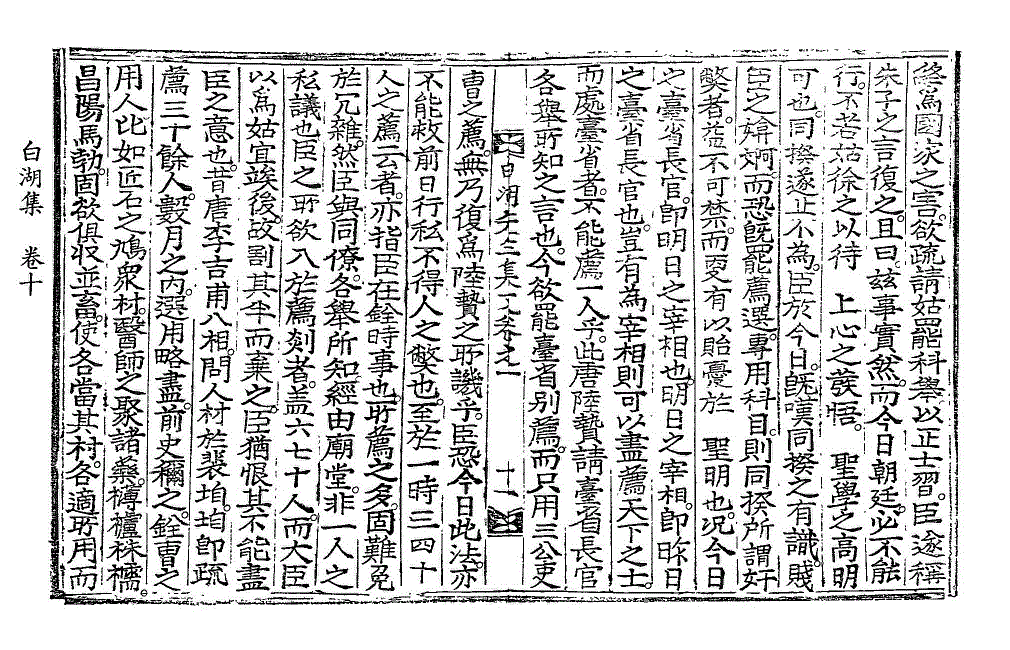 終爲國家之害。欲疏請姑罷科擧。以正士習。臣遂稱
朱子之言復之。且曰玆事實然。而今日朝廷。必不能
行。不若姑徐之以待　上心之發悟。　聖學之高明
可也。同揆遂止不爲。臣於今日。旣嘆同揆之有識。賤
臣之媕婀。而恐旣罷薦選。專用科目。則同揆所謂奸
弊者。益不可禁。而更有以貽憂於　聖明也。况今日
之臺省長官。卽明日之宰相也。明日之宰相。卽昨日
之臺省長官也。豈有爲宰相則可以盡薦天下之士。
而處臺省者。不能薦一人乎。此唐陸贄。請臺省長官
各擧所知之言也。今欲罷臺省別薦。而只用三公吏
白湖先生文集卷之十　十一
曹之薦。無乃復爲陸贄之所譏乎。臣恐今日此法。亦
不能救前日行私不得人之弊也。至於一時三四十
人之薦云者。亦指臣在銓時事也。所薦之多。固難免
於冗雜。然臣與同僚。各擧所知。經由廟堂。非一人之
私議也。臣之所欲入於薦剡者。盖六七十人。而大臣
以爲姑宜竢後。故割其半而棄之。臣猶恨其不能盡
臣之意也。昔唐李吉甫入相。問人材於裴垍。垍卽疏
薦三十餘人。數月之內。選用略盡。前史稱之。銓曹之
用人。比如匠石之鳩衆材。醫師之聚諸藥。欂櫨株檽。
昌陽馬勃。固欲俱收並畜。使各當其材。各適所用。而
白湖集　卷十